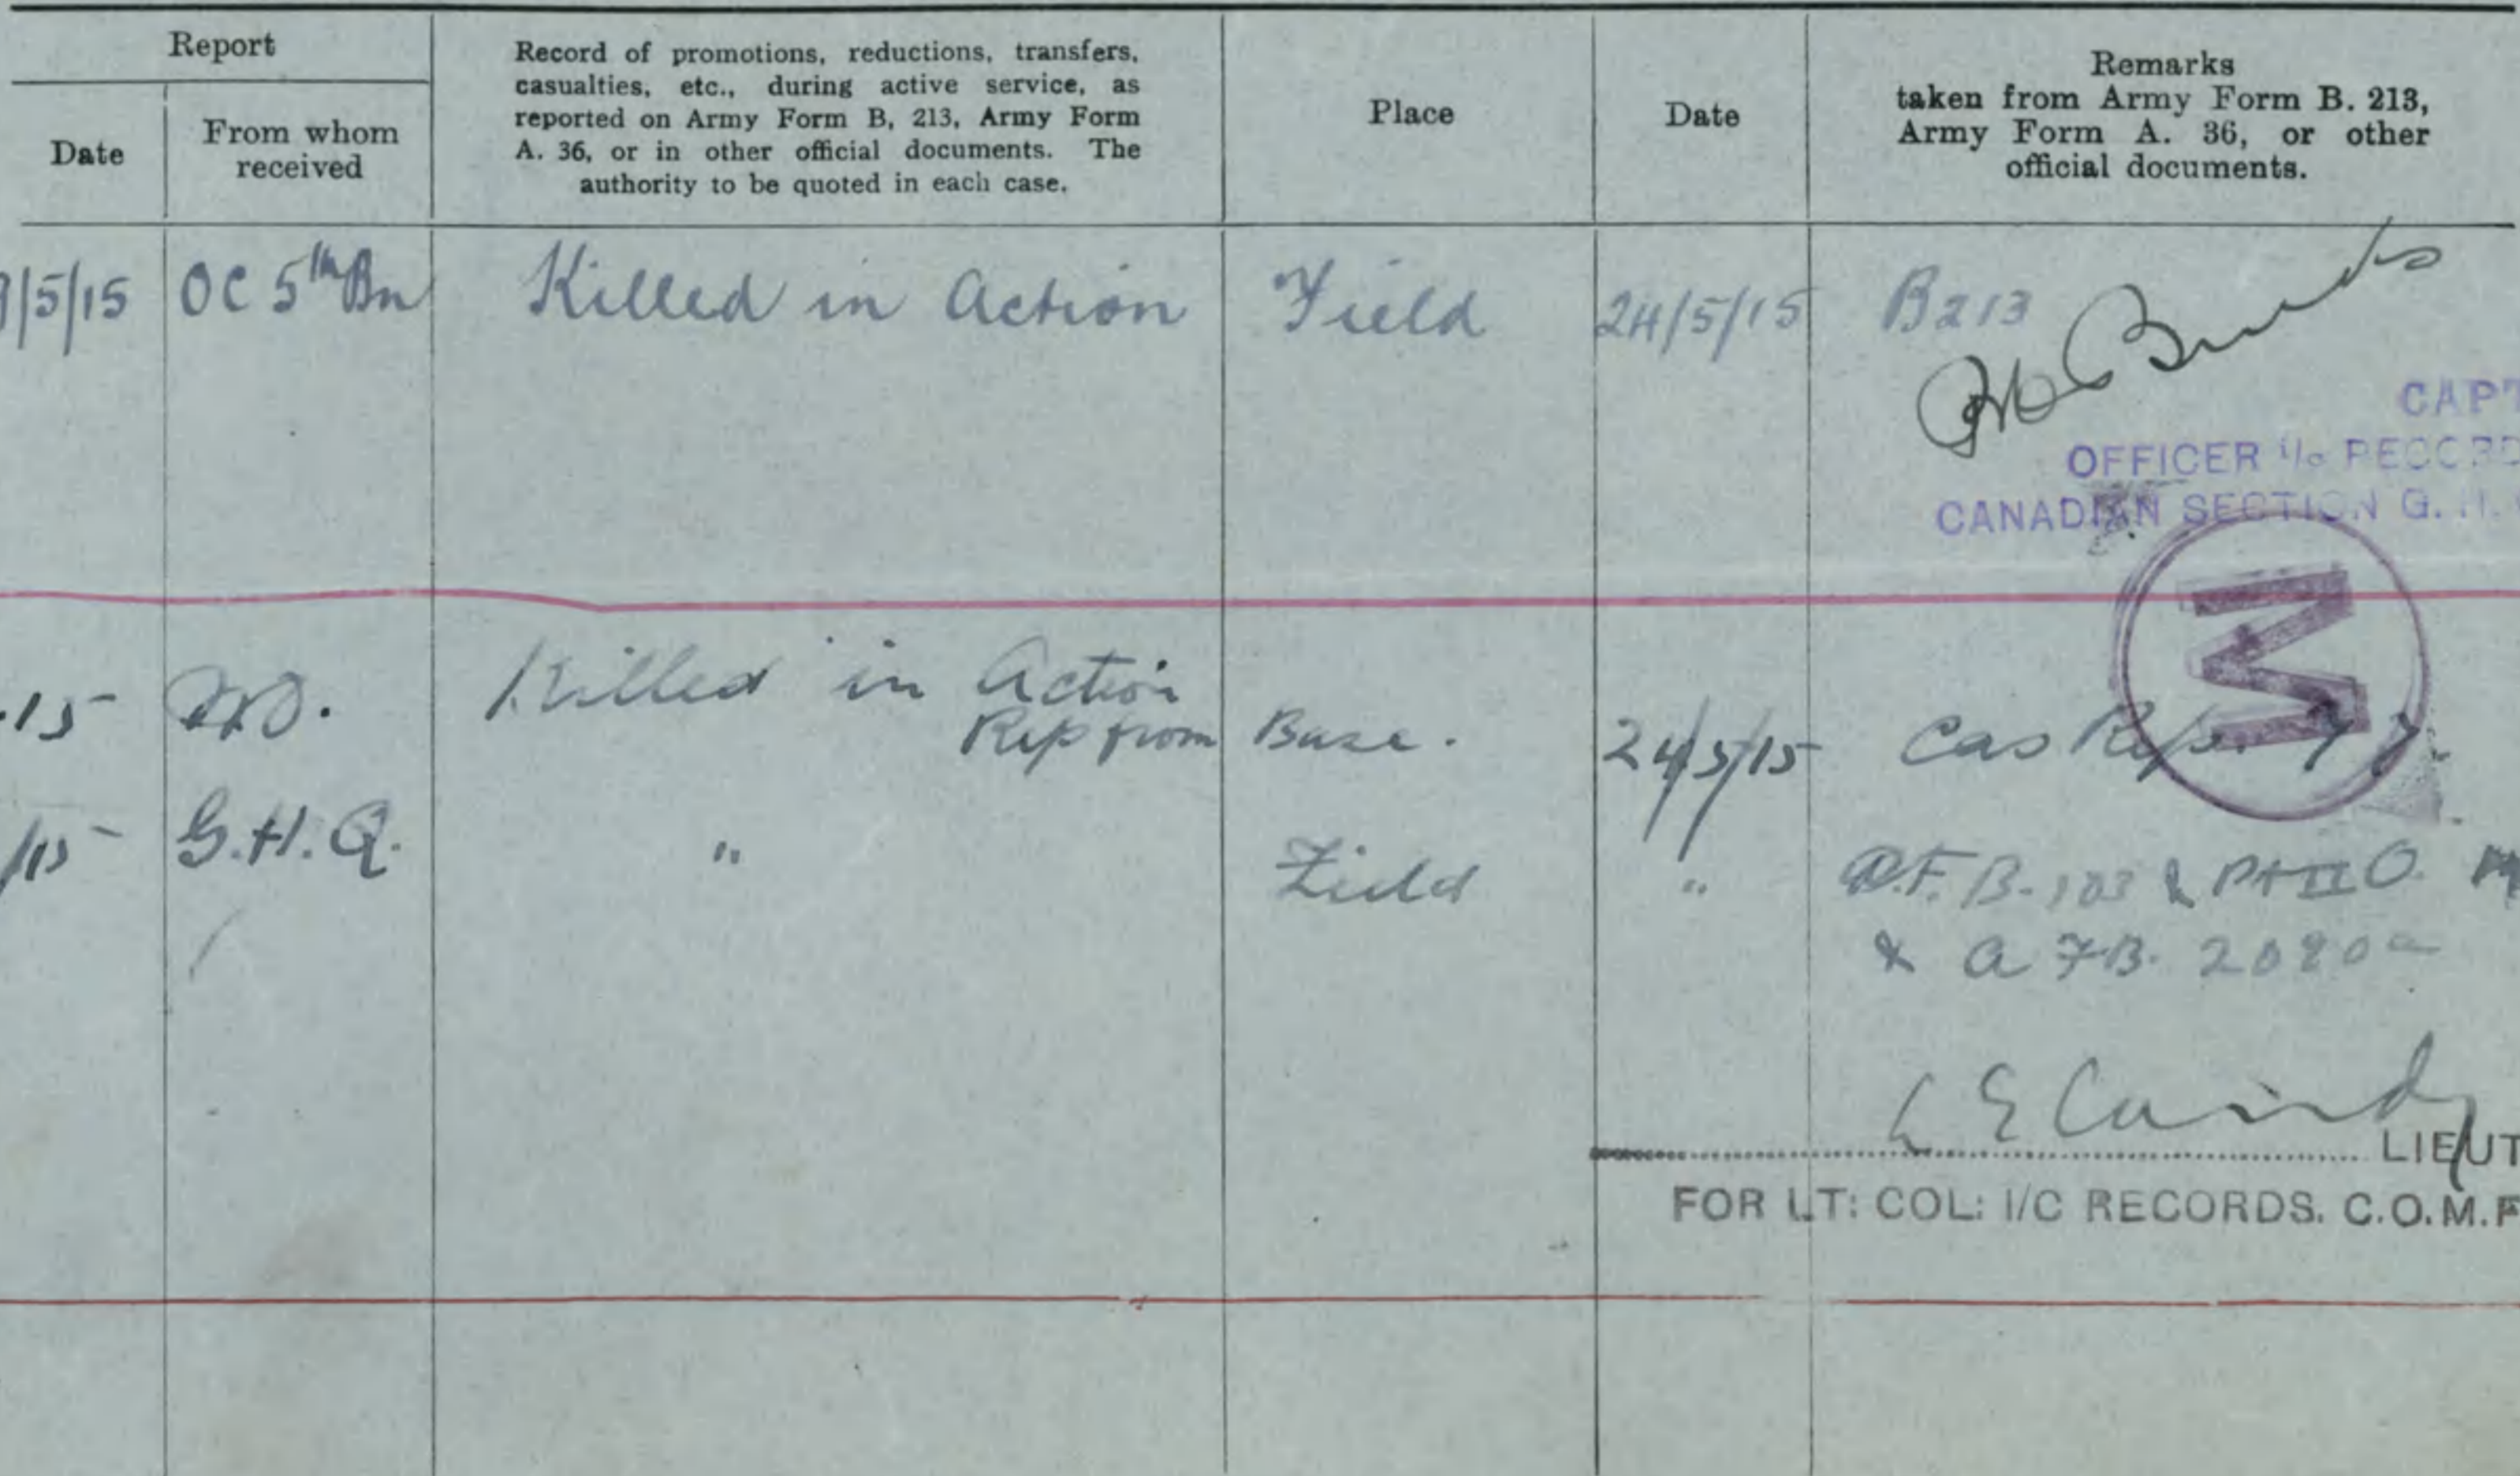 Report
Date
From whom
received
Record of promotions, reductions, transfers,
casualties, etc., during active service, as
reported on Army Form B, 213, Army Form
A. 36, or in other official documents. The
authority to be quoted in each case.
Place
Date
Remarks
taken from Army Form B. 213,
Army Form A. 36, or other
official documents.
/5/15 OC 5th Bn Killed in Action Field 24/5/15 B213
CAPT
OFFICER I/c RECORD
CANADIAN SECTION G. H.
M
15 W.O. Killed in Action
Rep from Base. 24/5/15 Cas Rep.
/15 G.H.Q. " Field " A.F. B. 103 & Pt II O.
& A F B. 2090a
LIEUT
FOR LT: COL: I/C RECORDS. C.O.M.F